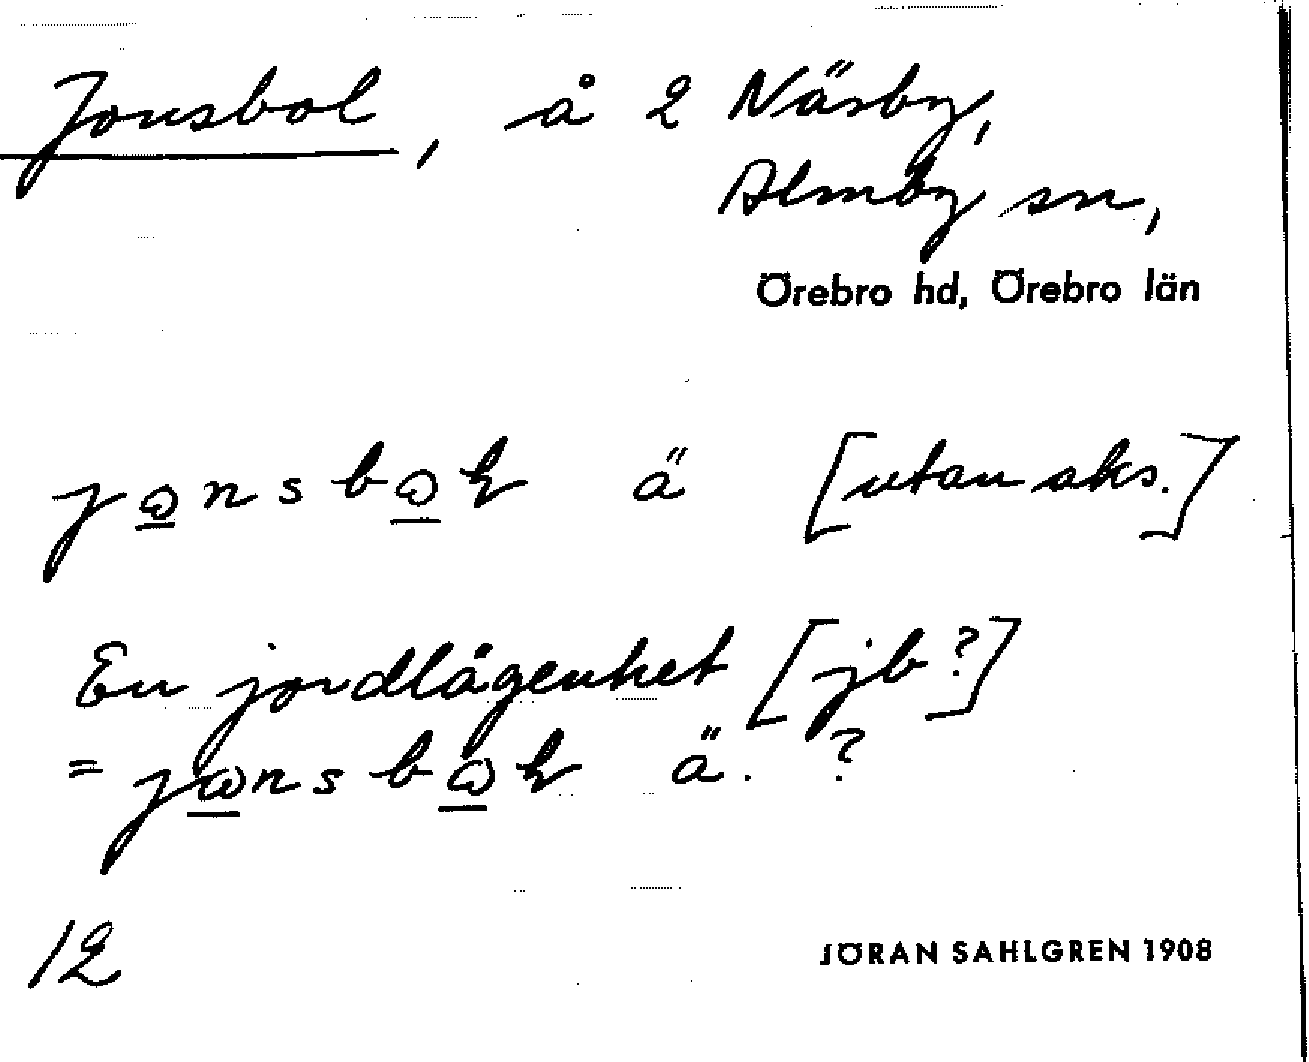 Jonsbol, å 2 Näsby,
Almby sn,
Örebro hd, Örebro län
ä [utan aks.]
En jordlägenhet [jb?]
= ä. ?
12
JÖRAN SAHLGREN 1908